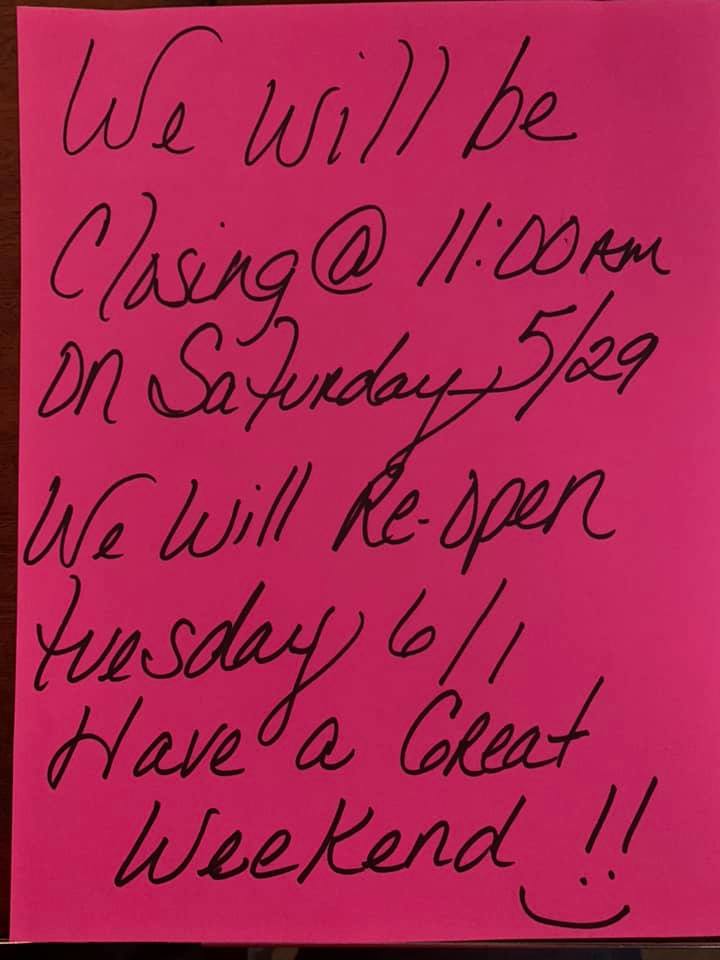 We will be
Closing @ 11:00 AM
on Saturday 5/29
We will Re-open
tuesday 6/1
Have a Great
Weekend !!